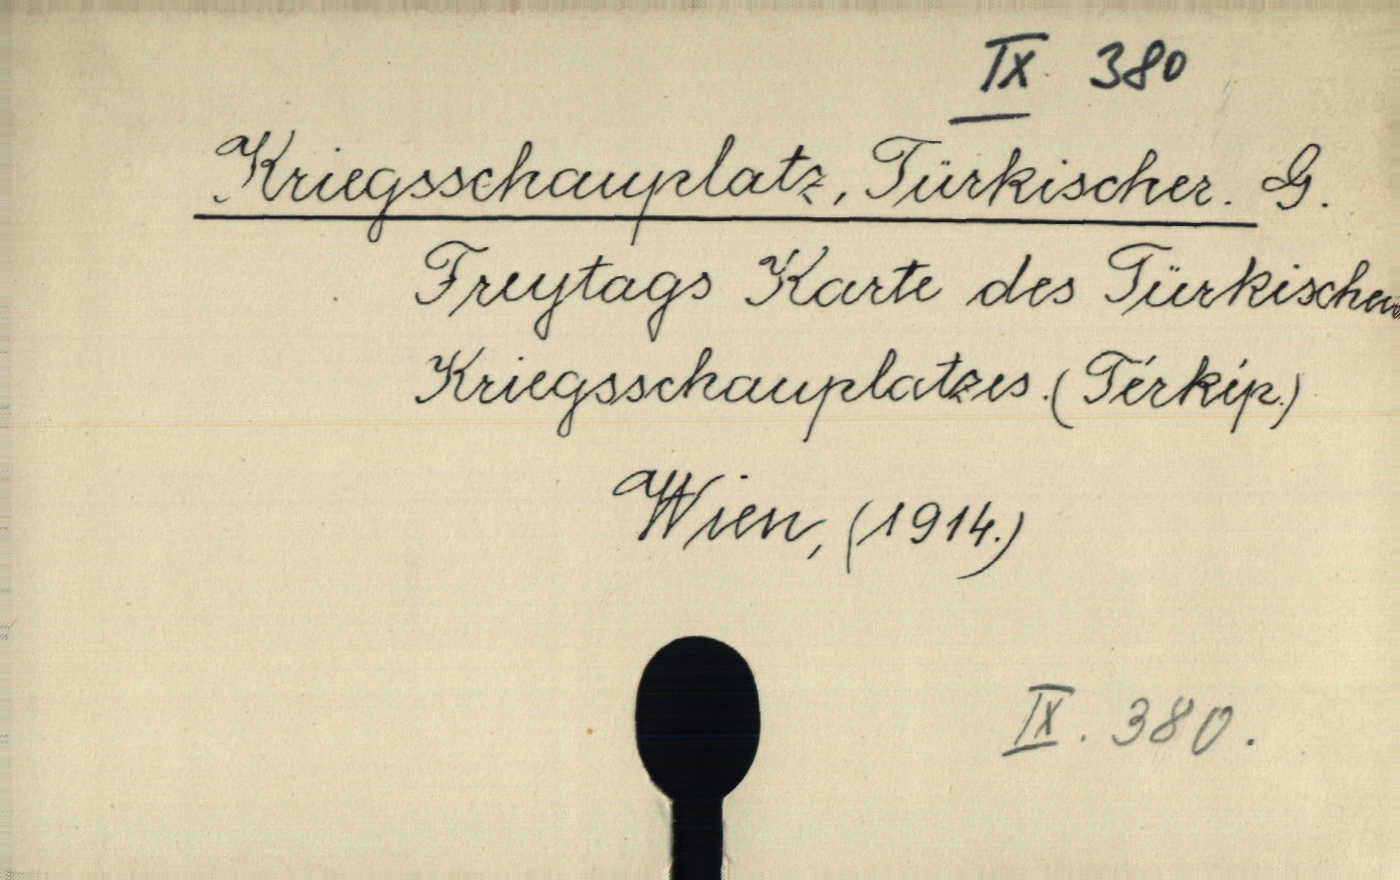 IX 380
Kriegsschauplatz, Türkischer. G.
Freytags Karte des Türkischen
Kriegsschauplatzes. (Térkép.)
Wien, (1914.)
IX. 380.